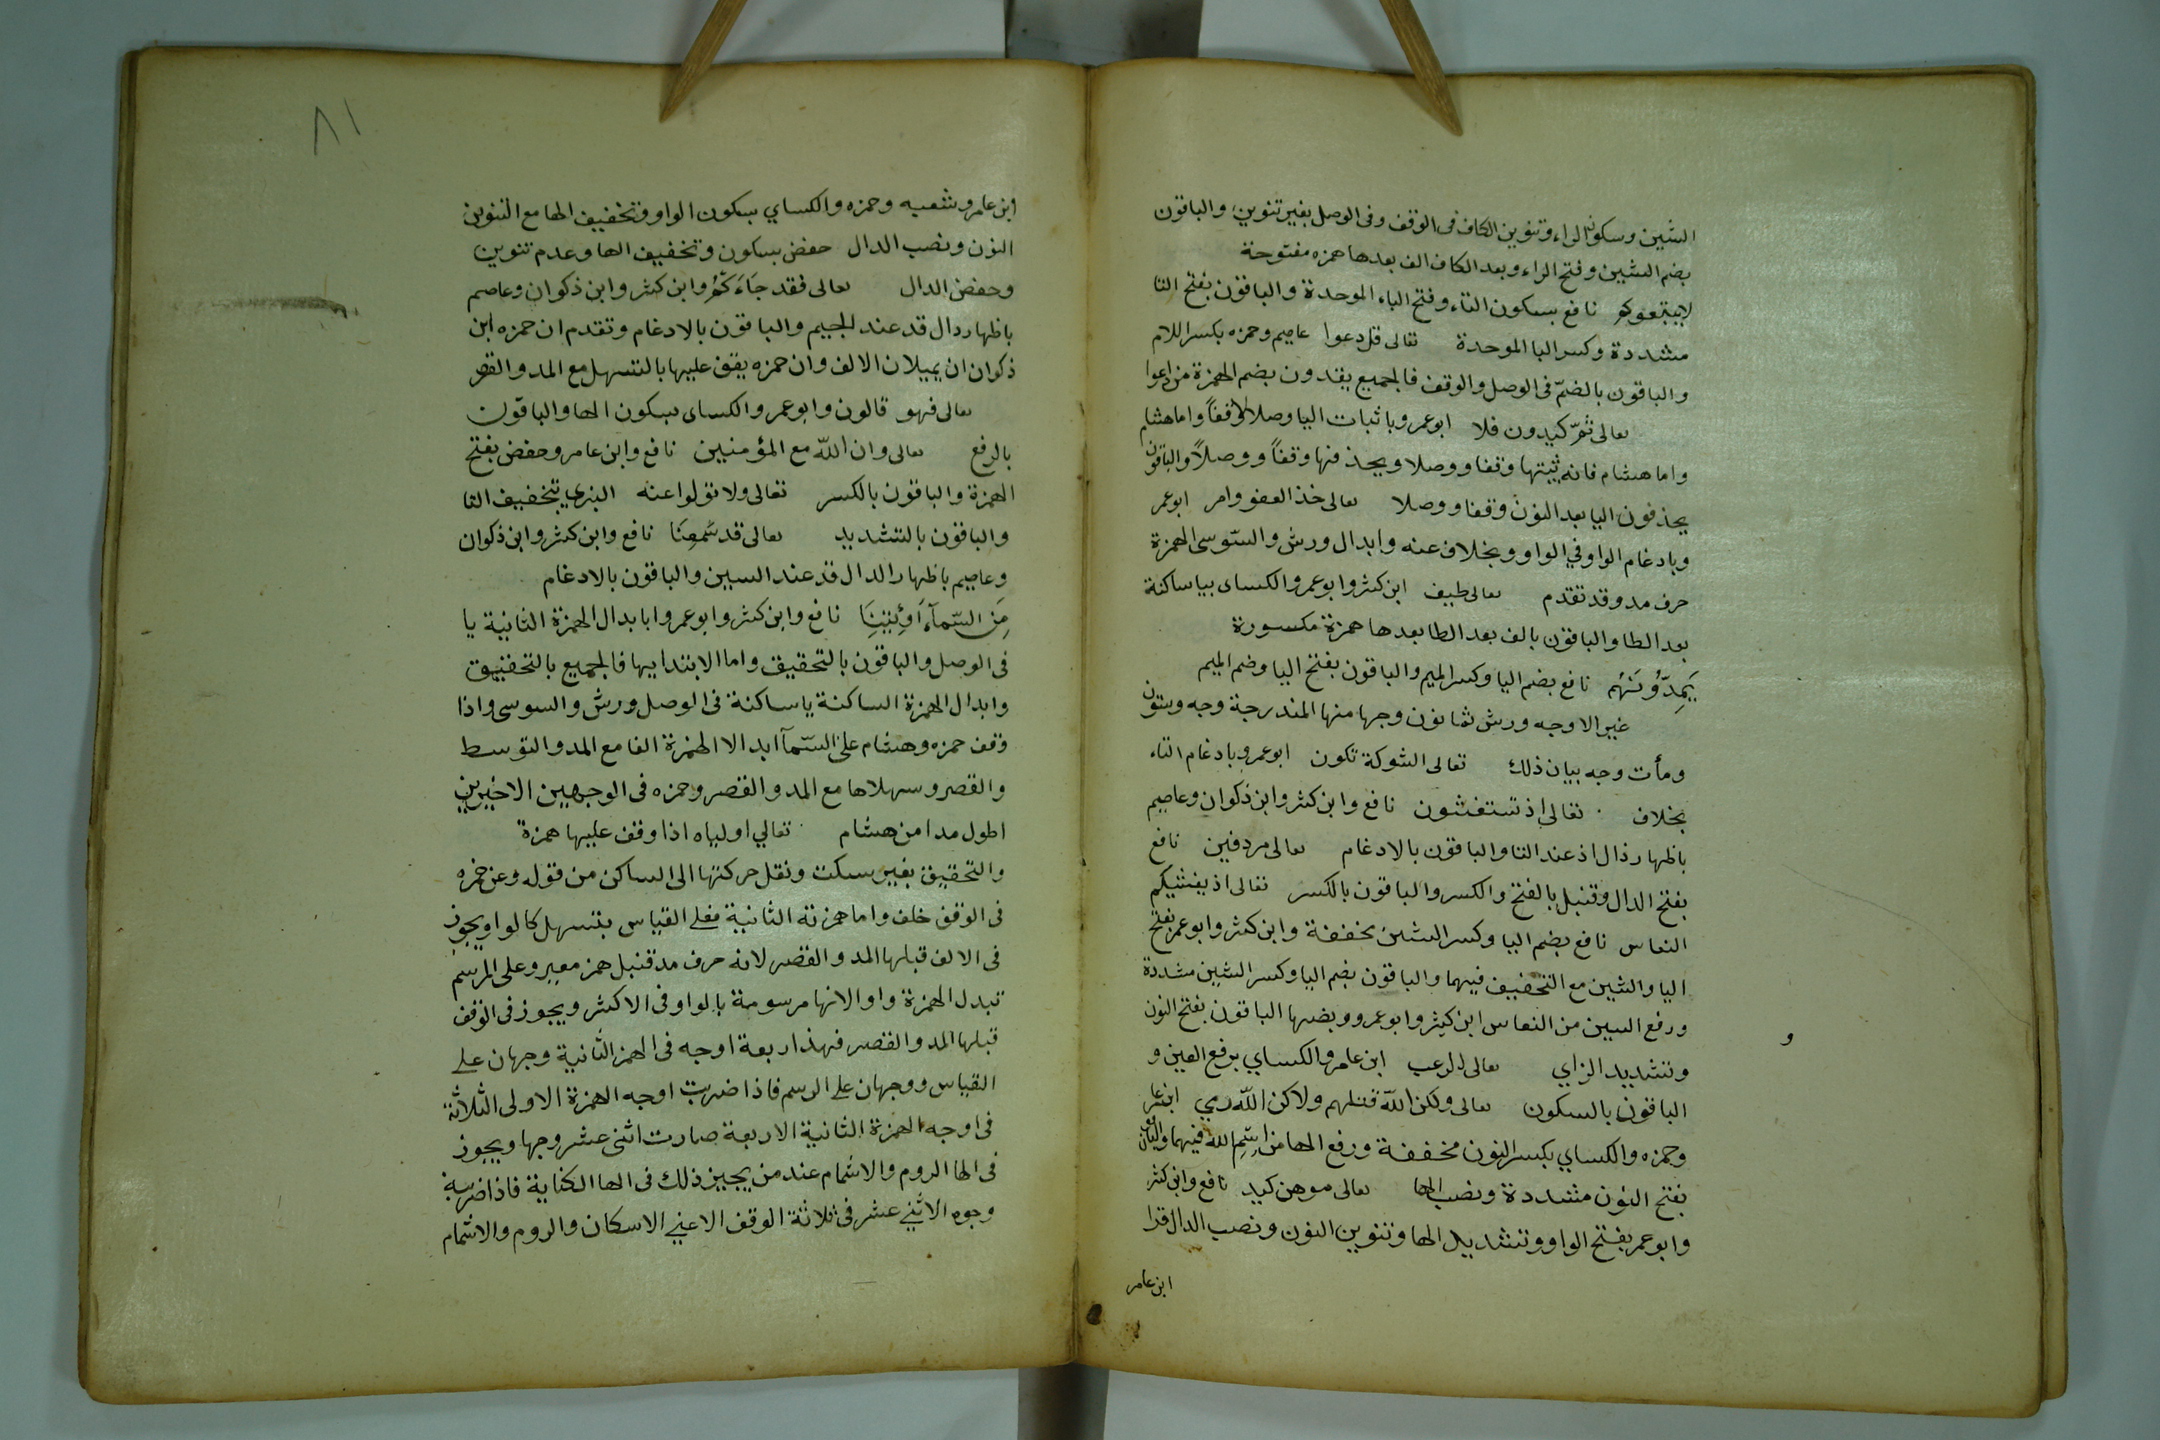 الشين وسكون الراء وتنوين الكاف فى الوقف وفى الوصل بغير تنوين والباقون
بضم الشين وفتح الراء وبعد الكاف الف بعدها همزه مفتوحة
لايتبعوكم نافع بسكون التاء وفتح الباء الموحدة والباقون بفتح التا
مشددة وكسر البا الموحدة تعالى قل دعوا عاصم وحمزه بكسر اللام
والباقون بالضمّ فى الوصل والوقف فالجميع يقدون بضم الهمزة من ادعوا
تعالى ثمّ كيدون فلا ابو عمرو باثبات اليا وصلا لا وقفاً واما هشام
واما هشام فانه يثبتها وقفا ووصلا ويحذفها وقفاً ووصلاً والباقون
يحذفون اليا بعد النون وقفا ووصلا تعالى خذ العفو وامر ابو عمر
وبادغام الواو في الواو وبخلاف عنه وابدال ورش والسّوسى الهمزة
حرف مد وقد تقدم تعالى طيف ابن كثر وابو عمر والكساى بيا ساكنة
بعد الطا والباقون بالف بعد الطا بعدها همزة مكسورة
يَمِدّوُنَهُم نافع بضم اليا وكسر الميم والباقون بفتح اليا وضم الميم
غير الاوجه ورش ثمانون وجها منها المندرجة وجه وستون
ومأت وجه بيان ذلك تعالى الشوكة تكون ابو عمرو بادغام التاء
بخلاف تعالى إذ تستغشون نافع وابن كثر وابن ذكوان وعاصم
باظهار ذال اذ عند التا والباقون بالادغام تعالى مردفين نافع
بفتح الدال وقنبل بالفتح والكسر والباقون بالكسر تعالى اذ يغشيكم
النعاس نافع بضم اليا وكسر الشين مخففة وابن كثر وابو عمر بفتح
اليا والشين مع التخفيف فيهما والباقون بضم اليا وكسر الشين مشددة
ورفع السين من النعاس ابن كثير وابو عمرو وبضبها الباقون بفتح النون
و
وتشديد الزاي تعالى الرعب ابن عامر والكساي برفع العين و
الباقون بالسكون تعالى ولكن اللّه قتلهم ولاكن اللّه رمي ابن عامر
وحمزه والكساي بكسر النون مخففة ورفع الها من اسم الله فيهما والباقون
بفتح النون مشددة ونصب الها تعالى موهن كيد نافع وابن كثر
وابو عمر بفتح الواو وتشديد الها وتنوين النون ونصب الدال قرا
ابن عامر
٨١
ابن عامر وشعبه وحمزه والكساي بسكون الواو وتخفيف الها مع التنوين
النون ونصب الدال حفص بسكون وتخفيف الها وعدم تنوين
وخفض الدال تعالى فقد جَاءَكُمُ وابن كثر وابن ذكوان وعاصم
باظهار دال قد عند الجيم والباقون بالادغام وتقدم ان حمزه ابن
ذكوان ان يميلان الالف وان حمزه يقف عليها بالتسهيل مع المد والقصر
تعالى فهو قالون وابو عمر والكساى بسكون الها والباقون
بالرفع تعالى وان اللّه مع المؤمنين نافع وابن عامر وحفص بفتح
الهمزة والباقون بالكسر تعالى ولا تولوا عنه البزي بتخفيف التا
والباقون بالتشديد تعالى قد سَمعِنَا نافع وابن كثر وابن ذكوان
وعاصم باظهار الدال قد عند السين والباقون بالادغام
مِنَ السّمآءِ أَوِئتِنَا نافع وابن كثر وابو عمر وابا بدال الهمزة الثانية يا
فى الوصل والباقون بالتحقيق واما الابتدا بيها فالجميع بالتحقيق
وابدال الهمزة الساكنة يا ساكنة فى الوصل ورش والسوسى واذا
وقف حمزه وهشام على السّمآ ابدالا الهمزة الفا مع المد والتوسط
والقصر وسهلاها مع المد والقصر وحمزه فى الوجهين الاخيرين
اطول مدا من هشام تعالي اولياه اذا وقف عليها همزة
والتحقيق بغير سكت ونقل حركتها الى الساكن من قوله وعن حمزه
فى الوقف خلف واما همزته الثانية فعلى القياس بتسهل كالواو يجوز
فى الالف قبلها المد والقصر لانه حرف مد قبل همز مغير وعلى الرسم
تبدل الهمزة واوا لانها مرسومة بالواو فى الاكثر ويجوز فى الوقف
قبلها المد والقصر فهذا ربعة اوجه فى الهمز الثانية وجهان على
القياس ووجهان على الرسم فاذا ضربت اوجه الهمزة الاولى الثلاثة
فى اوجه الهمزة الثانية الاربعة صارت اثنى عشر وجها ويجوز
فى الها الروم والاشمام عند من يجيز ذلك فى الها الكناية فاذا ضربت
وجوه الاثني عشر فى ثلاثة الوقف الاعني الاسكان والروم والاشمام